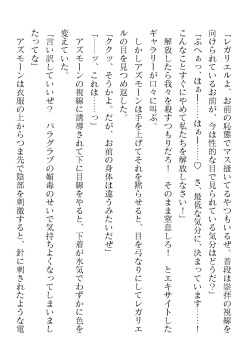 「レガリエルよ、お前の恥態でマス掻いてるやつもいるぜ。普段は崇拝の視線を
向けられているお前が、今は性的な目で見られている気分はどうだ？」
「ぶぐぁっ、はぁ……！　……はぁ……♡　さ、最低な気分に、決まっています……！
こんなことすぐにやめて私たちを解放しなさい！」
　解放したら我々を殺すつもりだろ！　そのまま窒息しろ！　とエキサイトした
ギャラリーが口々に叫ぶ。
　しかしアズモーンは手を上げてそれを黙らせると、目を弓なりにしてレガリエ
ルの目を見つめ返した。
「ククッ、そうかよ。だが、お前の身体は違うみたいだぜ」
「――ッ、これは……っ」
　アズモーンの視線に誘導されて下に目線をやると、下着が水気でわずかに色を
変えていた。
「言い訳していいぜ？　パラグラブの媚毒のせいで気持ちよくなってしまいまし
たってな」
　アズモーンは衣服の上からつま先で陰部を刺激すると、針に刺されたような電